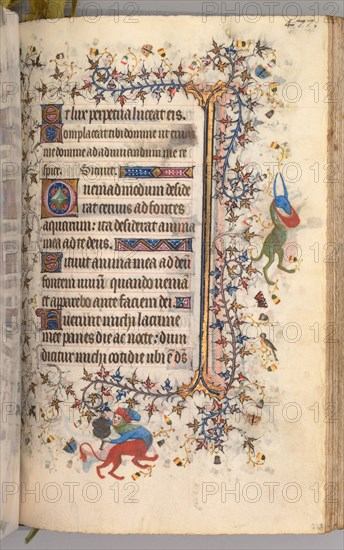 Et lux perpetua luceat eis.
Complaceat tibi domine ut eruas
me domine ad adiuvandum me re
spice. Sicut
Quemadmodum deside
rat cervus ad fontes
aquarum: ita desiderat anima
mea ad te deus.
Sitivit anima mea ad deu
fontem vivu quando venia
et apparebo ante faciem dei.
Fuerunt michi lacrime
mee panes die ac nocte: dum
dicitur michi cotidie ubi e ds